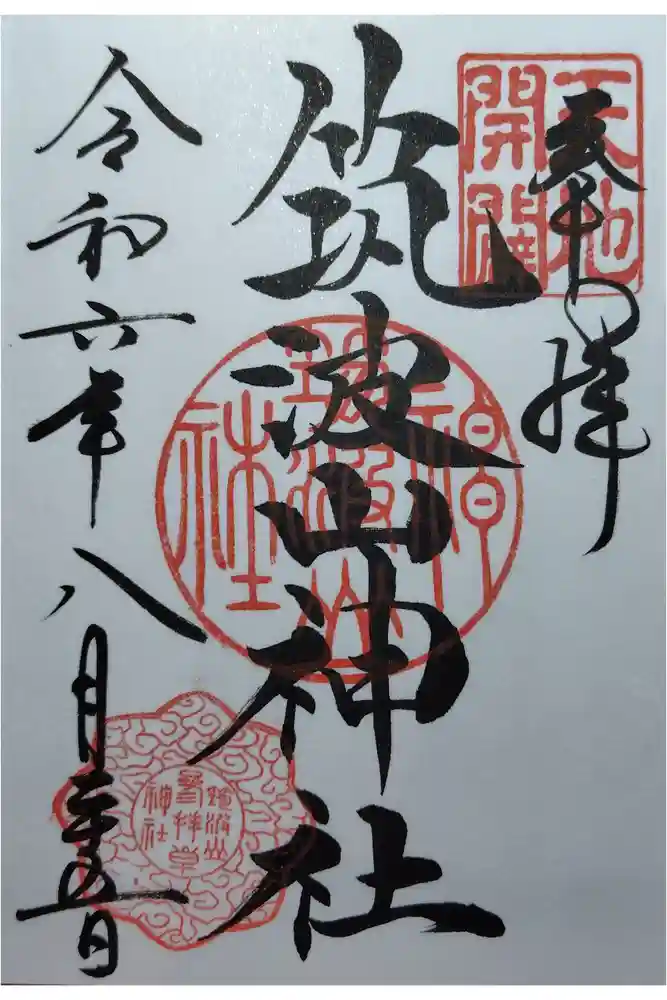 奉拝
天地
開闢
筑波山神社
筑波山
神
社
令和六年八月二十五日
筑波山
参拝章
神社